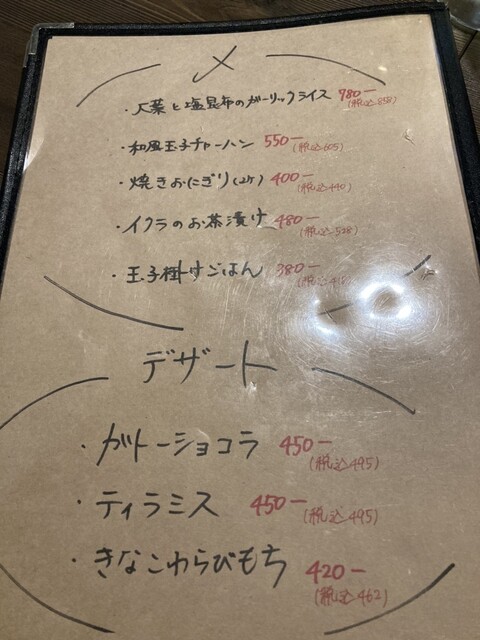 〆
・大葉と塩昆布のガーリックライス 780-
(税込858)
・和風玉子チャーハン 550-(税込605)
・焼きおにぎり(2ケ) 400-(税込440)
・イクラのお茶漬け 480-(税込528)
・玉子掛けごはん 380-(税込418)
デザート
・ガトーショコラ 450-
(税込495)
・ティラミス 450-
(税込495)
・きなこわらびもち 420-
(税込462)